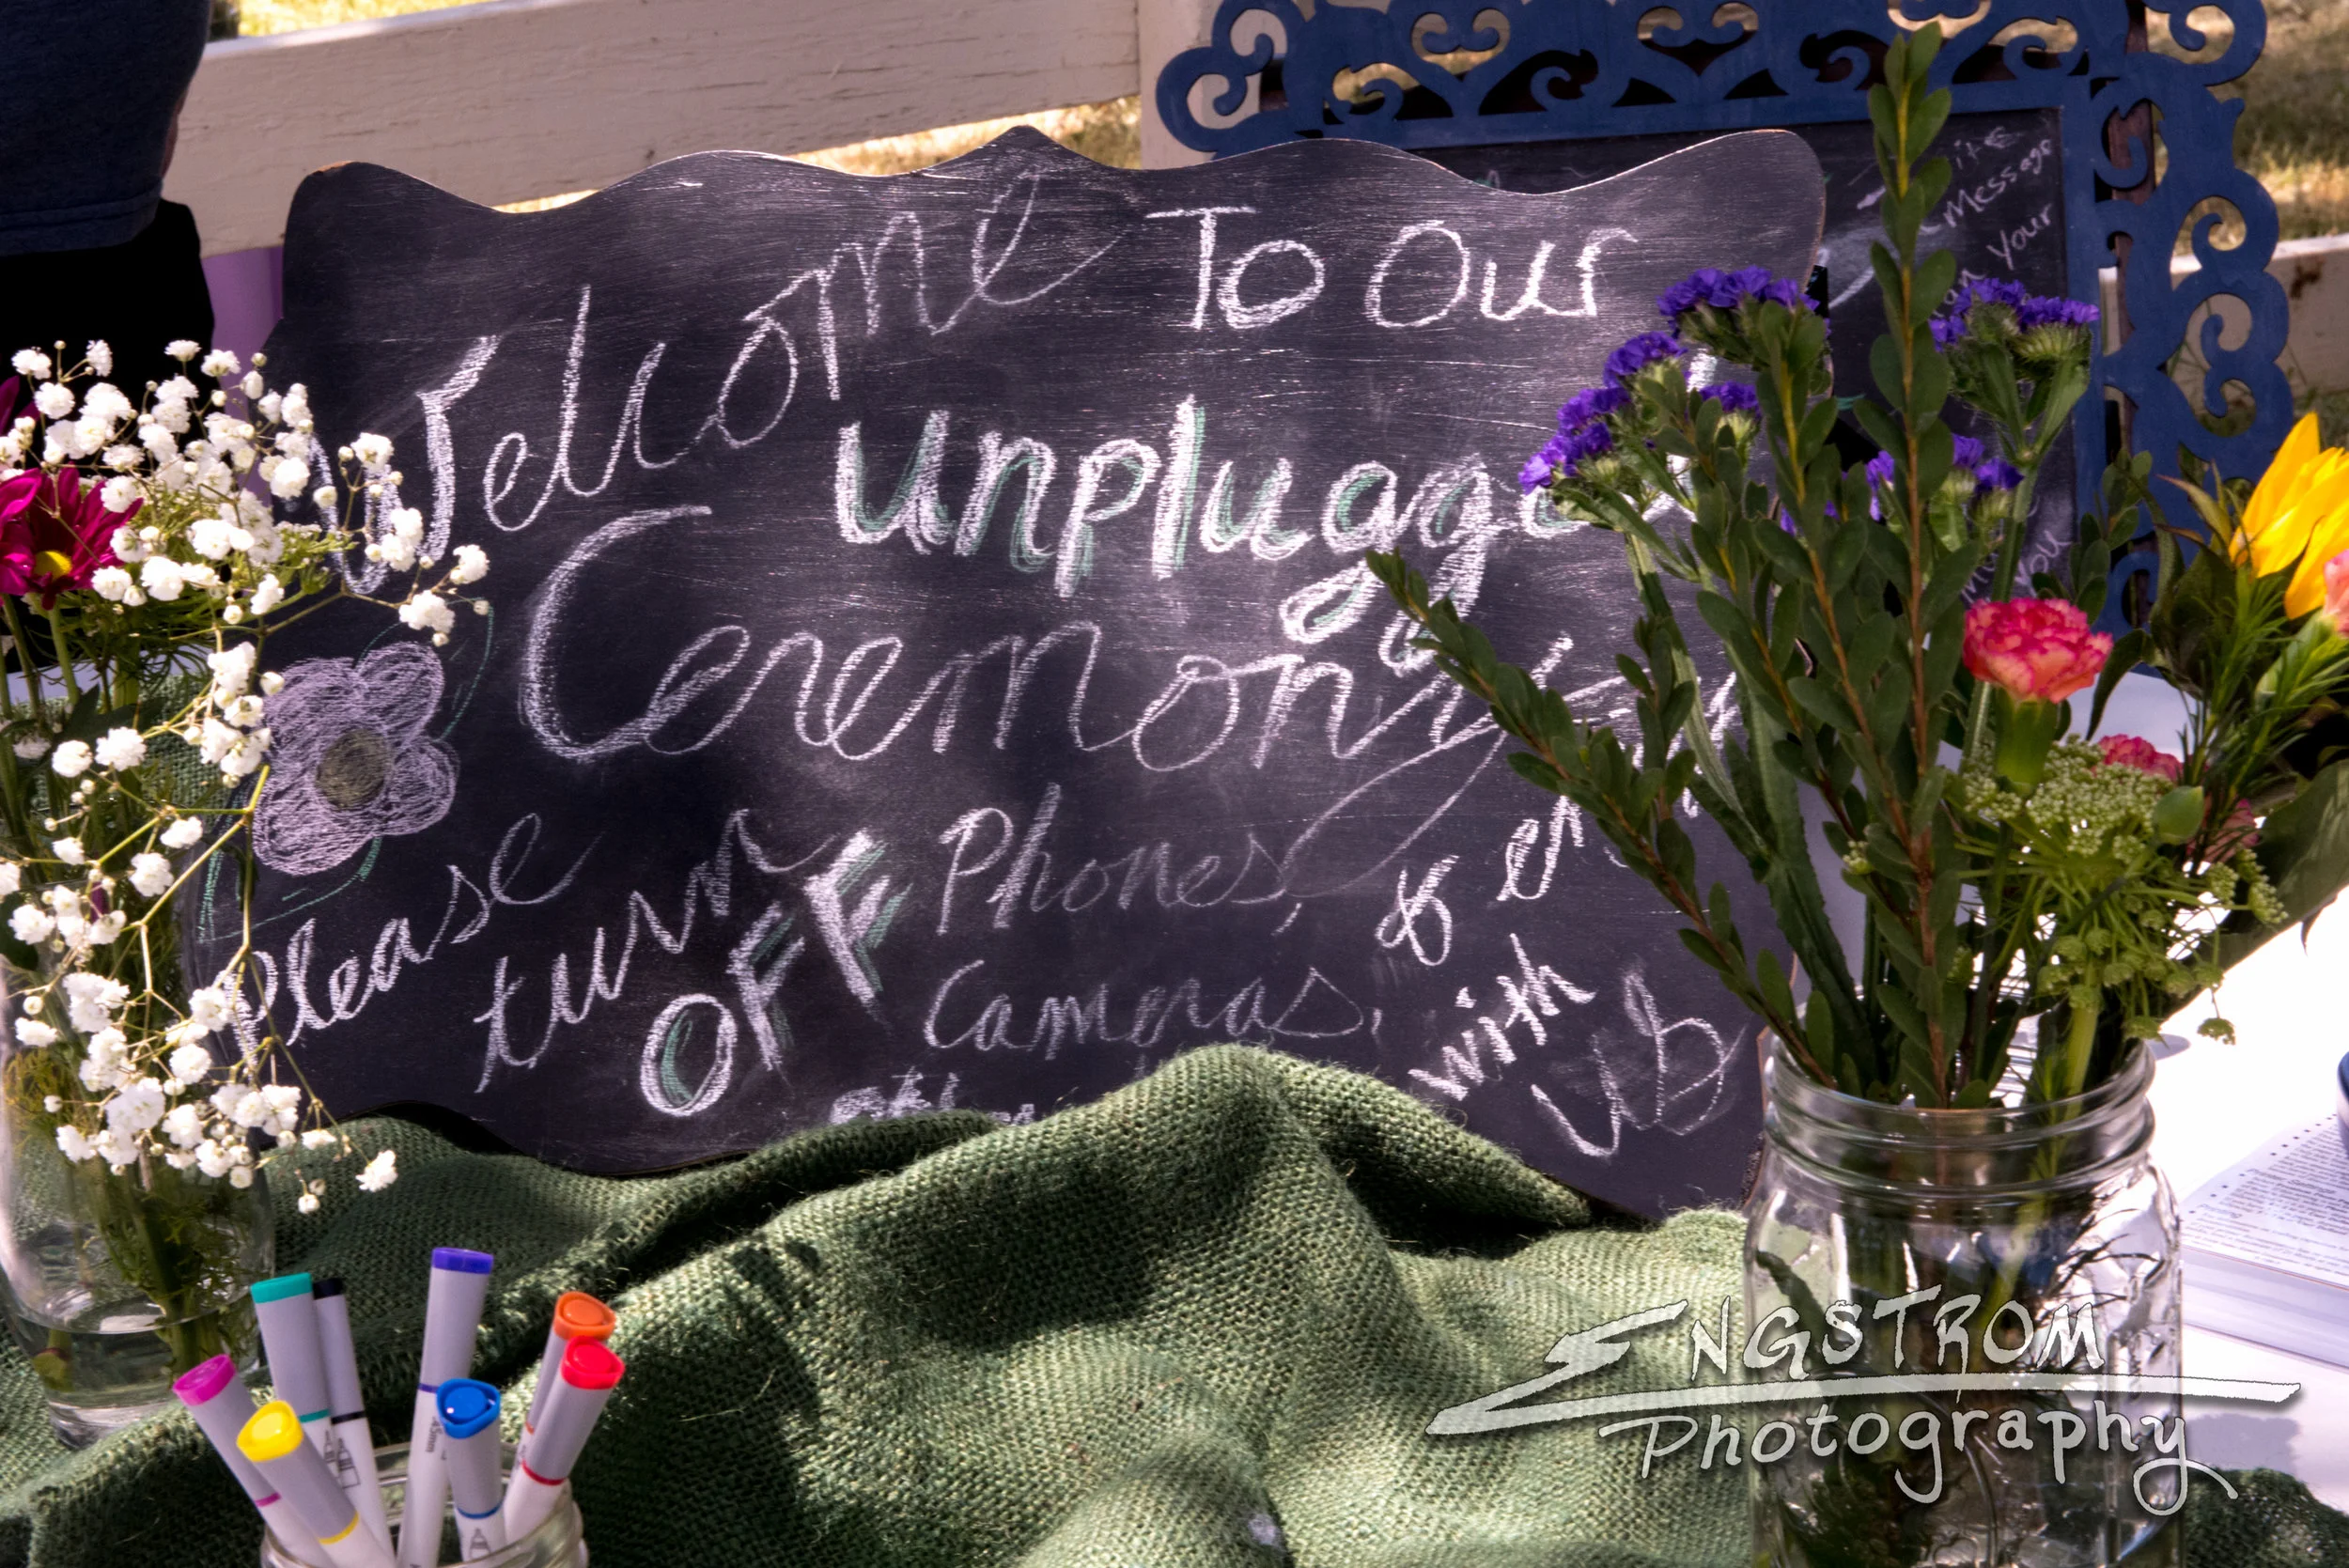 Welcome To Our
unplugged
Ceremony
Please
turn
OFF
Phones,
Cameras,
&
with
us
Message
Your
you
ENGSTROM
Photography